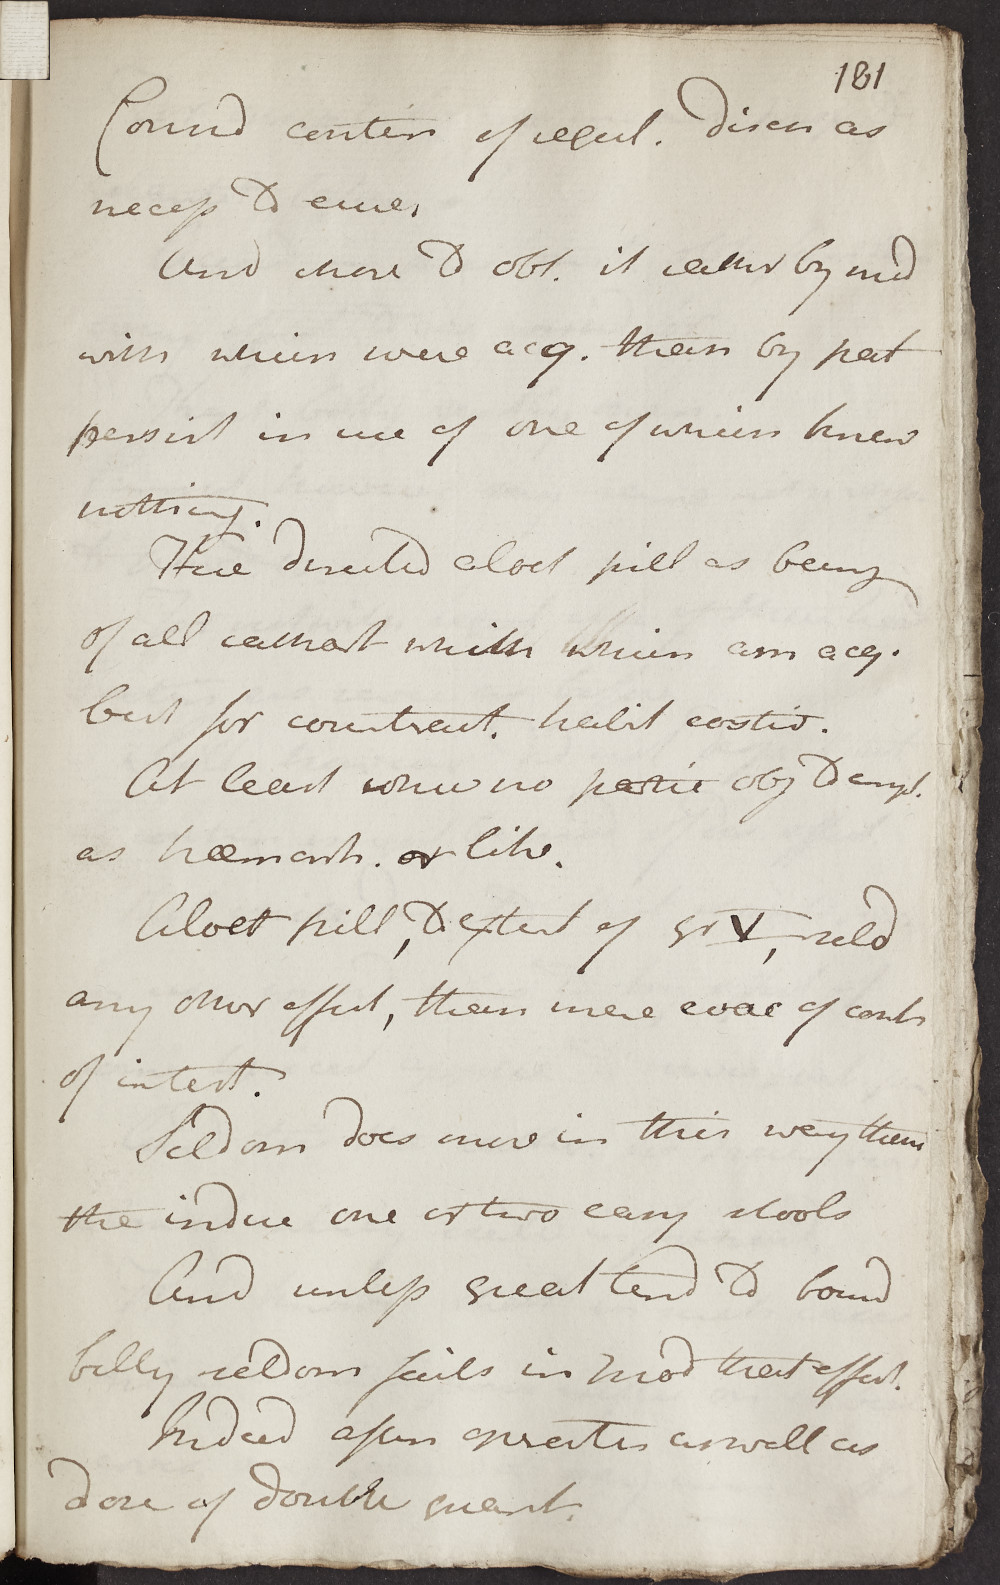 181
Cound contin of regul. disch as
necess to cure.
And chose to obt. it rather by med
with which were acq. than by pat
persist in use of one of which knew
nothing.
Have directed aloet pill as being
of all cathart which am acq.
best for counteract. habit costiv.
At least where no partic obj to empl.
as hæmorrh. or like.
Aloet pill, to extent of gr V, seld
any other effect, than mere evac of conts
of intest.
Seldom does more in this way than
the induce one or two easy stools
And unless great tend to bound
belly seldom fails in prod that effect.
Indeed often operates as well as
dose of double quant.